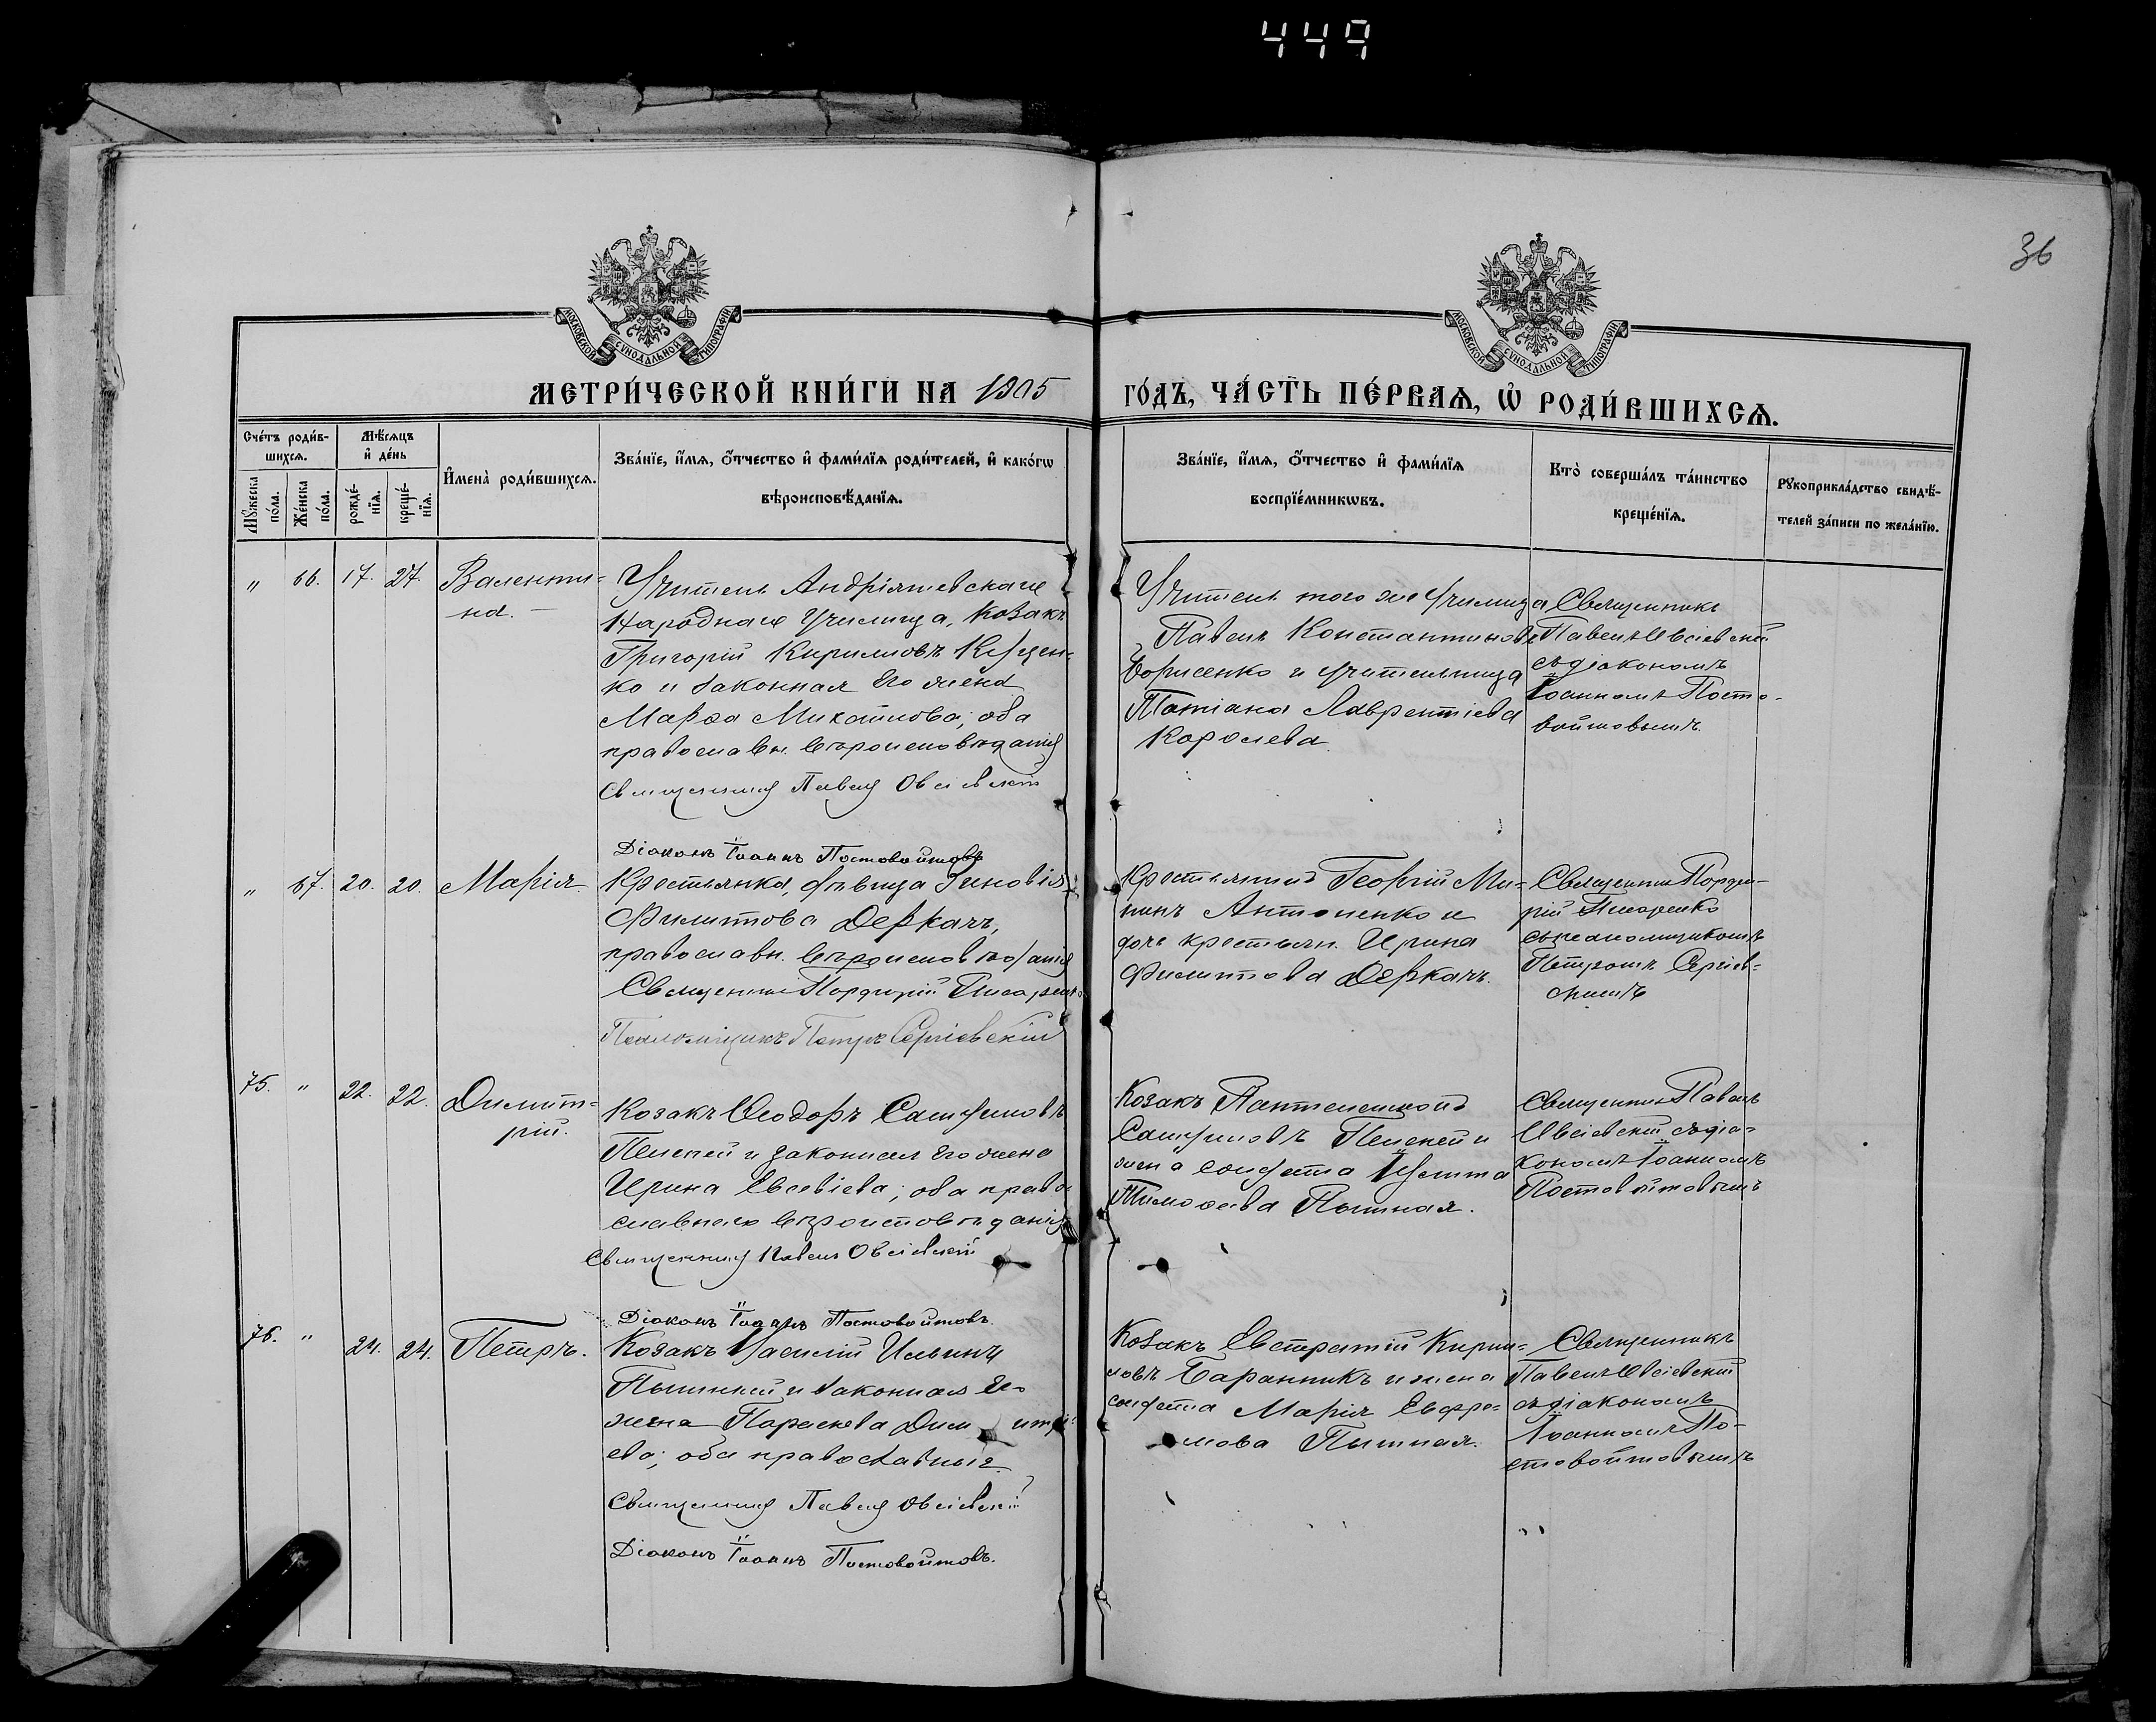 449
36
МОСКОВСКОЙ СѴНОДАЛЬНОЙ ТИПОГРАФІИ
МОСКОВСКОЙ СѴНОДАЛЬНОЙ ТИПОГРАФІИ
МЕТРИ́ЧЕСКОЙ КНИ́ГИ НА 1905
ГО́ДЪ, ЧА́СТЬ ПЕ́РВАѦ, Ѡ҆ РОДИ́ВШИХСѦ.
Сче́тъ роди́в-
шихсѧ.
Мꙋ́жеска по́ла.
Же́нска по́ла.
Мѣ́сѧцъ
и҆ де́нь
рожде́-
нїѧ.
креще́-
нїѧ.
И҆мена̀ роди́вшихсѧ.
Зва́нїе, и҆́мѧ, ѻ҆́тчество и҆ фами́лїѧ роди́телей, и҆ како́гѡ
вѣроисповѣ́данїѧ.
Зва́нїе, и҆́мѧ, ѻ҆́тчество и҆ фами́лїѧ
воспрїе́мникѡвъ.
Кто̀ соверша́лъ та́инство
креще́нїѧ.
Рꙋкоприкла́дство свидѣ́-
телей за́писи по жела́нїю.
" 66. 17. 27. Валенти-
на.
Учитель Андріяшевскаго
Народнаго Училища, козакъ
Григорій Кирилловъ
ко и законная его жена
Марѳа Михайлова; оба
православн. вѣроисповѣданія
Священникъ Павелъ Овсіевскій
Діаконъ Іоаннъ Постовойтовъ
Учитель того же Училища
Павелъ Константиновъ
Борисенко и учительница
Татіана Лаврентіева
Королева
Священникъ
Павелъ Овсіевскій
съ діакономъ
Іоанномъ Посто-
войтовымъ.
" 67. 20. 20. Марія.
Крестьянка, дѣвица Зиновія
Филиппова Деркачъ,
православн. вѣроисповѣданія
Священникъ Порфирій Писаренко
Псаломщикъ Петръ Сергіевскій
Крестьянинъ Георгій Ми-
нинъ Антоненко и
дочь крестьян. Ирина
Филиппова Деркачъ.
Священникъ Порфи-
рій Писаренко
съ псаломщикомъ
Петромъ Сергіев-
скимъ
75. " 22. 22. Димит-
рій.
Козакъ Ѳеодоръ
и законная его жена
Ирина Евсевіева; оба право-
славнаго вѣроисповѣданія
Священникъ Павелъ Овсіевскій
Діаконъ Іоаннъ Постовойтовъ.
Козакъ Пантелеймонъ
и
жена солдата
Тимоѳеева Пышная.
Священникъ Павелъ
Овсіевскій съ діа-
кономъ Іоанномъ
Постовойтовымъ
76. " 24. 24. Петръ.
Козакъ Василій Ильинъ
и законная его
жена Параскева Димитрі-
ева; оба православные.
Священникъ Павелъ Овсіевскій
Діаконъ Іоаннъ Постовойтовъ.
Козакъ Евстратій Кирил-
ловъ Баранникъ и жена
солдата Марія Ефре-
мова Пышная.
Священникъ
Павелъ Овсіевскій
съ діакономъ
Іоанномъ По-
стовойтовымъ